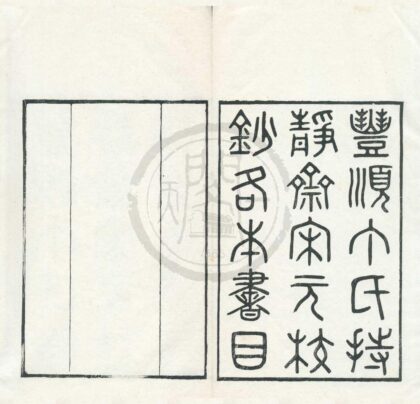 豐順丁氏持
靜齋宋元校
鈔各本書目